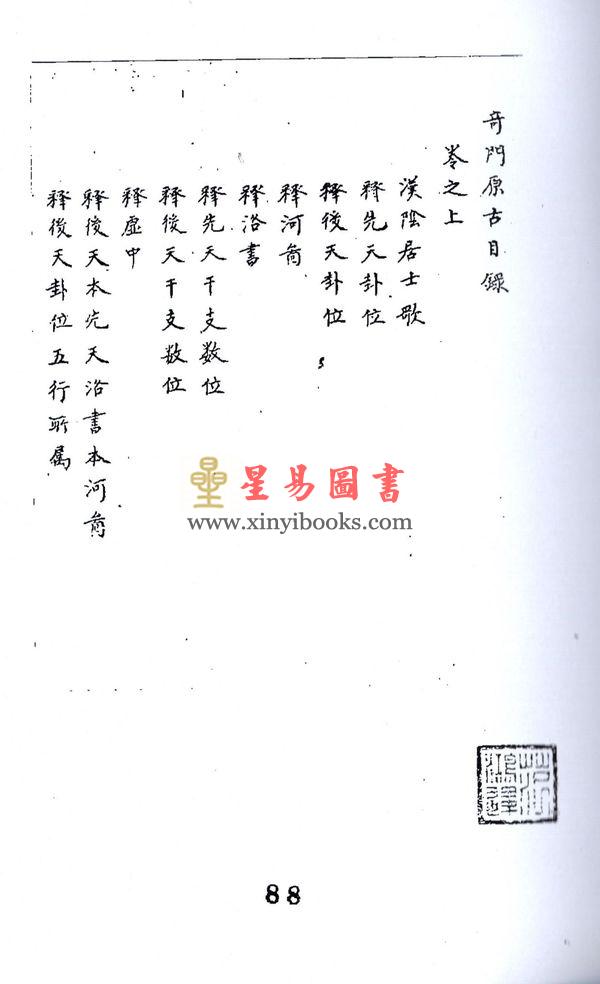 奇門原古目錄
卷之上
漢陰居士歌
釋先天卦位
釋後天卦位
釋河啚
釋洛書
釋先天干支数位
釋後天干支数位
釋虛中
釋後天本先天洛書本河啚
釋後天卦位五行所属
星易圖書
www.xinyibooks.com
88